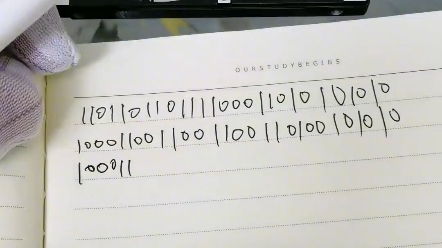 OURSTUDYBEGINS
11011011011110001101010101010
1000110011001100110100101010
100011